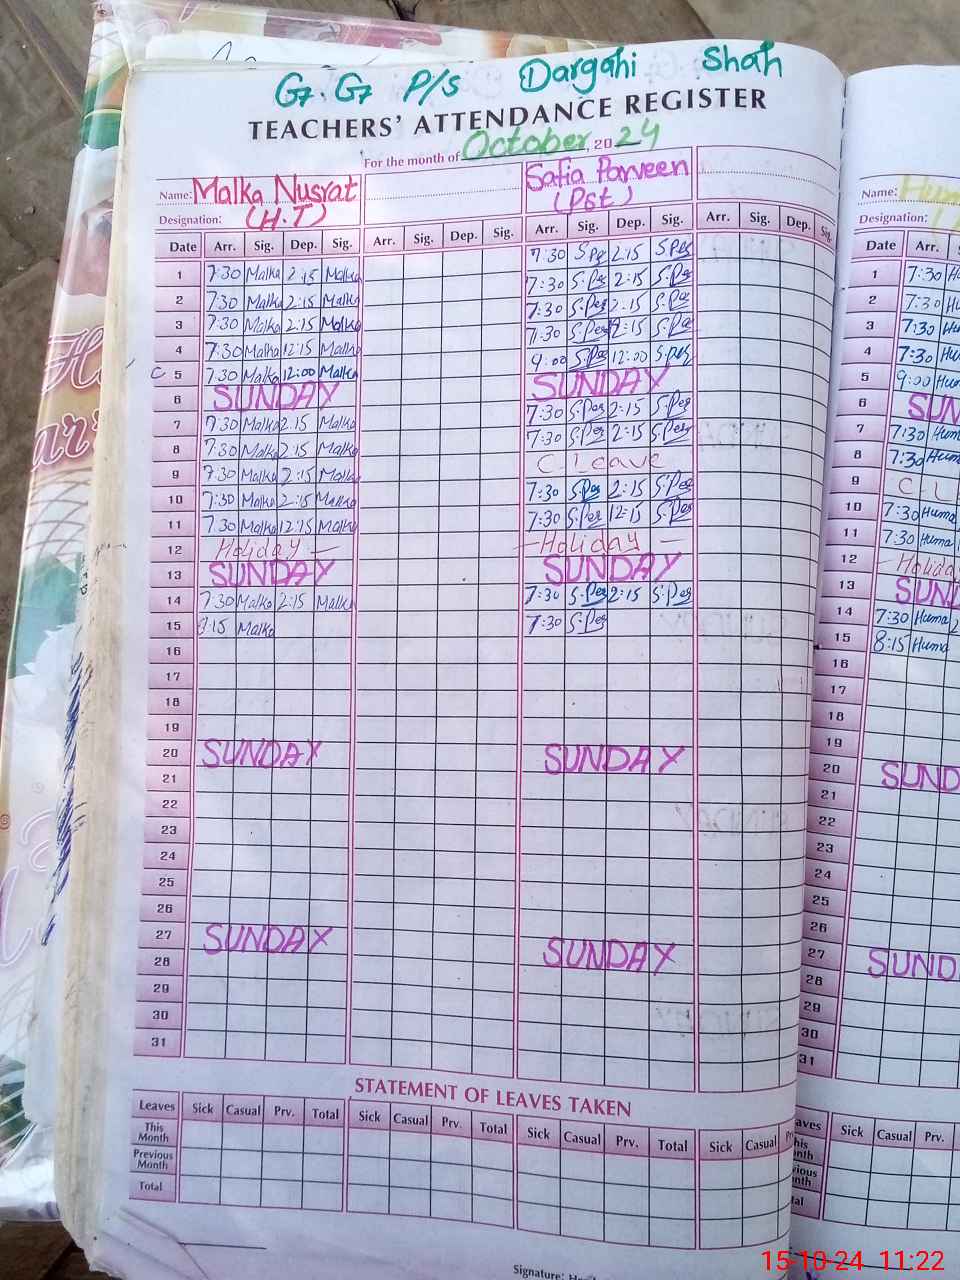 G.G P/S Dargahi Shah
TEACHERS' ATTENDANCE REGISTER
For the month of October, 2024
Name: Malka Nusrat Safia Parveen Name:
Designation: (H.T) (Pst) Designation:
Date Arr. Sig. Dep. Sig. Arr. Sig. Dep. Sig. Arr. Sig. Dep. Sig. Arr. Sig. Dep. Sig. Date Arr.
1 7:30 Malka 2:15 Malka 7:30 S.Per 2:15 S.Per 1 7:30
2 7:30 Malka 2:15 Malka 7:30 S.Per 2:15 S.Per 2 7:30
3 7:30 Malka 2:15 Malka 7:30 S.Per 2:15 S.Per 3 7:30 Hum
4 7:30 Malka 12:15 Malka 7:30 S.Per 12:15 S.Per 4 7:30 Hum
5 7:30 Malka 12:00 Malka 9:00 S.Per 12:00 S.Per 5 9:00 Hum
6 SUNDAY SUNDAY 6 SUN
7 7:30 Malka 2:15 Malka 7:30 S.Per 2:15 S.Per 7 7:30 Hum
8 7:30 Malka 2:15 Malka 7:30 S.Per 2:15 S.Per 8 7:30 Hum
9 7:30 Malka 2:15 Malka C.Leave 9 C.L
10 7:30 Malka 2:15 Malka 7:30 S.Per 2:15 S.Per 10 7:30 Huma
11 7:30 Malka 12:15 Malka 7:30 S.Per 12:15 S.Per 11 7:30 Huma
12 Holiday — — Holiday — 12 - Holiday
13 SUNDAY SUNDAY 13 SUND
14 7:30 Malka 2:15 Malka 7:30 S.Per 2:15 S.Per 14 7:30 Huma 2
15 8:15 Malka 7:30 S.Per 15 8:15 Huma
16 16
17 17
18 18
19 19
20 SUNDAY SUNDAY 20 SUND
21 21
22 22
23 23
24 24
25 25
26 26
27 SUNDAY SUNDAY 27 SUND
28 28
29 29
30 30
31 31
STATEMENT OF LEAVES TAKEN
Leaves Sick Casual Prv. Total Sick Casual Prv. Total Sick Casual Prv. Total Sick Casual Sick Casual Prv.
This Month
Previous Month
Total
Signature:
15-10-24 11:22